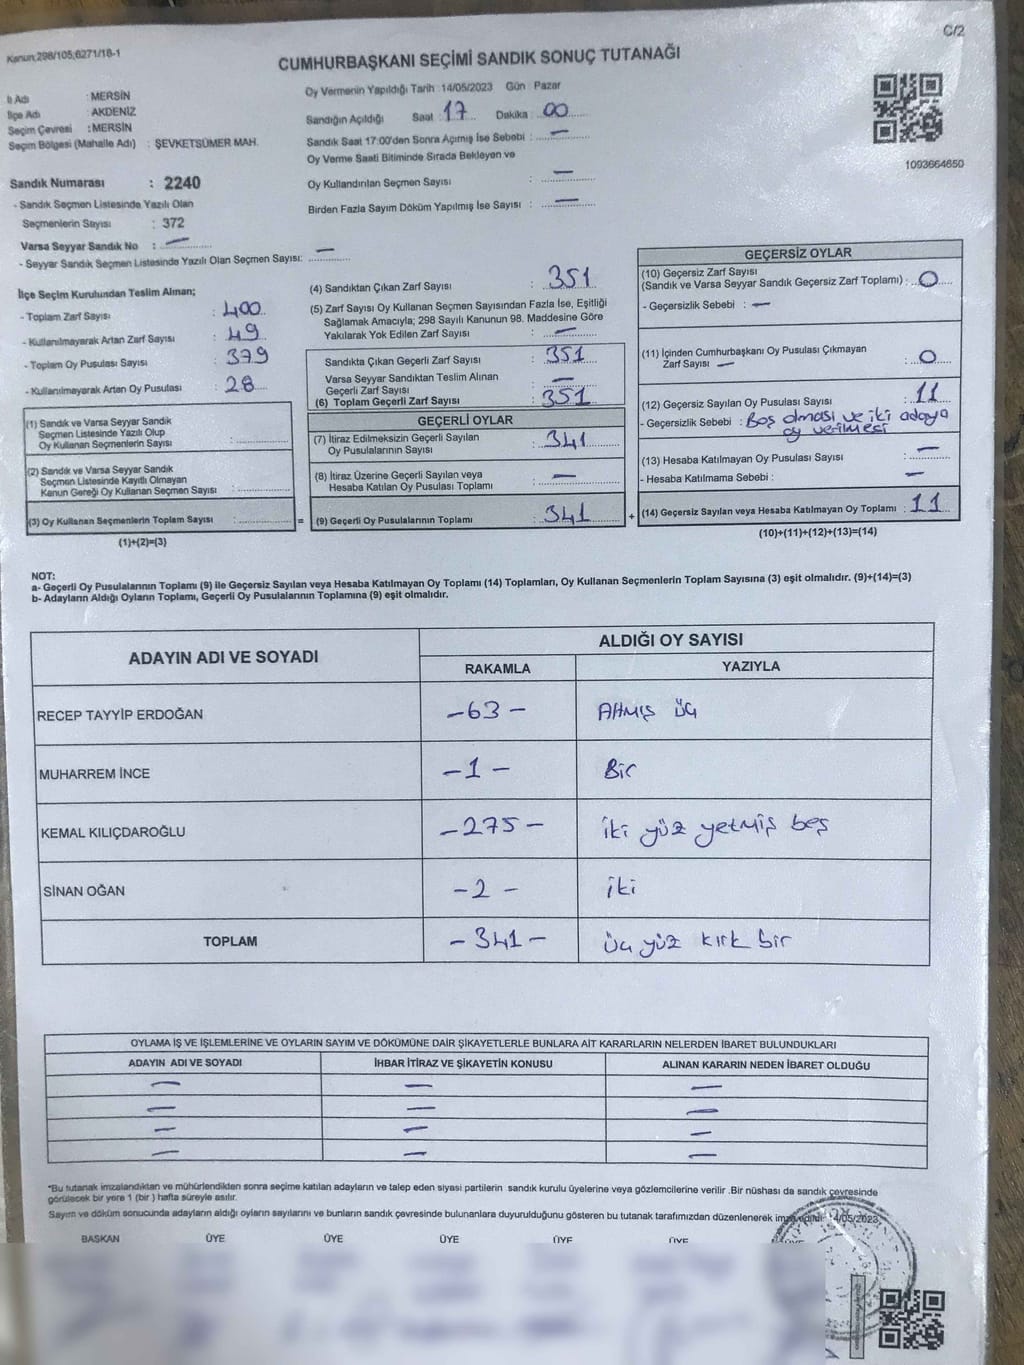 C/2
Kanun;298/105;6271/18-1
CUMHURBAŞKANI SEÇİMİ SANDIK SONUÇ TUTANAĞI
İl Adı : MERSİN
İlçe Adı : AKDENİZ
Seçim Çevresi : MERSİN
Seçim Bölgesi (Mahalle Adı) : ŞEVKETSÜMER MAH.
Sandık Numarası : 2240
- Sandık Seçmen Listesinde Yazılı Olan
Seçmenlerin Sayısı : 372
Varsa Seyyar Sandık No : —
- Seyyar Sandık Seçmen Listesinde Yazılı Olan Seçmen Sayısı: —
Oy Vermenin Yapıldığı Tarih : 14/05/2023 Gün : Pazar
Sandığın Açıldığı Saat : 17 Dakika : 00
Sandık Saat 17:00'den Sonra Açımış İse Sebebi : —
Oy Verme Saati Bitiminde Sırada Bekleyen ve
Oy Kullandırılan Seçmen Sayısı : —
Birden Fazla Sayım Döküm Yapılmış İse Sayısı : —
1093664650
İlçe Seçim Kurulundan Teslim Alınan;
- Toplam Zarf Sayısı : 400
- Kullanılmayarak Artan Zarf Sayısı : 49
- Toplam Oy Pusulası Sayısı : 379
- Kullanılmayarak Artan Oy Pusulası : 28
(1) Sandık ve Varsa Seyyar Sandık
Seçmen Listesinde Yazılı Olup
Oy Kullanan Seçmenlerin Sayısı :
(2) Sandık ve Varsa Seyyar Sandık
Seçmen Listesinde Kayıtlı Olmayan
Kanun Gereği Oy Kullanan Seçmen Sayısı :
(3) Oy Kullanan Seçmenlerin Toplam Sayısı :
(1)+(2)=(3)
=
(4) Sandıktan Çıkan Zarf Sayısı : 351
(5) Zarf Sayısı Oy Kullanan Seçmen Sayısından Fazla İse, Eşitliği
Sağlamak Amacıyla; 298 Sayılı Kanunun 98. Maddesine Göre
Yakılarak Yok Edilen Zarf Sayısı : —
Sandıkta Çıkan Geçerli Zarf Sayısı : 351
Varsa Seyyar Sandıktan Teslim Alınan
Geçerli Zarf Sayısı : —
(6) Toplam Geçerli Zarf Sayısı : 351
GEÇERLİ OYLAR
(7) İtiraz Edilmeksizin Geçerli Sayılan
Oy Pusulalarının Sayısı : 341
(8) İtiraz Üzerine Geçerli Sayılan veya
Hesaba Katılan Oy Pusulası Toplamı : —
(9) Geçerli Oy Pusulalarının Toplamı : 341
+
GEÇERSİZ OYLAR
(10) Geçersiz Zarf Sayısı
(Sandık ve Varsa Seyyar Sandık Geçersiz Zarf Toplamı) : 0
- Geçersizlik Sebebi : —
(11) İçinden Cumhurbaşkanı Oy Pusulası Çıkmayan
Zarf Sayısı — : 0
(12) Geçersiz Sayılan Oy Pusulası Sayısı : 11
- Geçersizlik Sebebi : Boş olması ve iki adaya
oy verilmesi
(13) Hesaba Katılmayan Oy Pusulası Sayısı : —
- Hesaba Katılmama Sebebi : —
(14) Geçersiz Sayılan veya Hesaba Katılmayan Oy Toplamı : 11
(10)+(11)+(12)+(13)=(14)
NOT:
a- Geçerli Oy Pusulalarının Toplamı (9) ile Geçersiz Sayılan veya Hesaba Katılmayan Oy Toplamı (14) Toplamları, Oy Kullanan Seçmenlerin Toplam Sayısına (3) eşit olmalıdır. (9)+(14)=(3)
b- Adayların Aldığı Oyların Toplamı, Geçerli Oy Pusulalarının Toplamına (9) eşit olmalıdır.
ADAYIN ADI VE SOYADI ALDIĞI OY SAYISI
RAKAMLA YAZIYLA
RECEP TAYYİP ERDOĞAN -63- Altmış üç
MUHARREM İNCE -1- Bir
KEMAL KILIÇDAROĞLU -275- iki yüz yetmiş beş
SİNAN OĞAN -2- iki
TOPLAM -341- üç yüz kırk bir
OYLAMA İŞ VE İŞLEMLERİNE VE OYLARIN SAYIM VE DÖKÜMÜNE DAİR ŞİKAYETLERLE BUNLARA AİT KARARLARIN NELERDEN İBARET BULUNDUKLARI
ADAYIN ADI VE SOYADI İHBAR İTİRAZ VE ŞİKAYETİN KONUSU ALINAN KARARIN NEDEN İBARET OLDUĞU
— — —
— — —
— — —
— — —
*Bu tutanak imzalandıktan ve mühürlendikten sonra seçime katılan adayların ve talep eden siyasi partilerin sandık kurulu üyelerine veya gözlemcilerine verilir .Bir nüshası da sandık çevresinde
görülecek bir yere 1 (bir ) hafta süreyle asılır.
Sayım ve döküm sonucunda adayların aldığı oyların sayılarını ve bunların sandık çevresinde bulunanlara duyurulduğunu gösteren bu tutanak tarafımızdan düzenlenerek 14/05/2023
BAŞKAN ÜYE ÜYE ÜYE ÜYE ÜYE